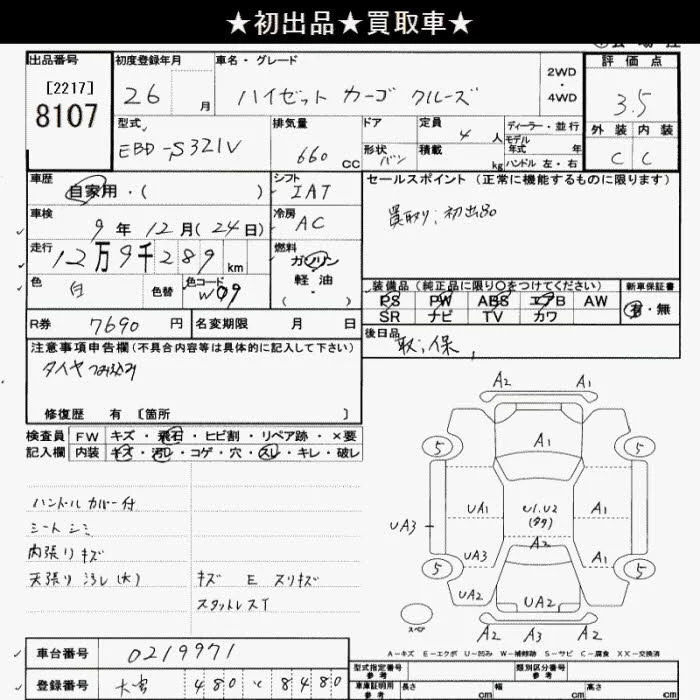 ★初出品★買取車★
出品番号
[2217]
8107
初度登録年月
26 月
車名・グレード
ハイゼット カーゴ クルーズ
2WD
・
4WD
評価点
3.5
外装 内装
C C
型式
EBD-S321V
排気量
660 cc
ドア
形状 バン
定員
4 人
積載
kg
ディーラー・並行
モデル年式 年
ハンドル 左・右
車歴
自家用・( )
シフト
IAT
セールスポイント (正常に機能するものに限ります)
買取り; 初出品
車検
9年 12月(24日)
冷房
AC
走行
12万9千289 km
燃料
ガソリン
軽油
( ・ )
色
白
色替
色コード
W09
装備品(純正品に限り○をつけてください)
新車保証書
PS PW ABS エアB AW
SR ナビ TV カワ
有・無
R券 7690 円
名変期限 月 日
後日品
取;保
注意事項申告欄(不具合内容等は具体的に記入して下さい)
修復歴 有 [箇所 ]
検査員
記入欄
FW キズ・飛石・ヒビ割・リペア跡・×要
内装 キズ・汚レ・コゲ・穴・スレ・キレ・破レ
ハンドルカバー付
シートシミ
内張りキズ
天張り汚レ(大)
キズ E スリキズ
スタットレスT
A2 A1
5 A1 5
UA1 U1.U2 A1
(多タ)
UA3
A2
UA3 A1
5 5
UA2 UA2 A2
スペア
A2 A3 A2
A-キズ E-エクボ U-凹み W-補修跡 S-サビ C-腐食 XX-交換済
車台番号 0219971
型式指定番号
参考
類別区分番号
参考
登録番号 大宮 480 く 8480
車庫証明用
参考
長さ cm
幅 cm
高さ cm